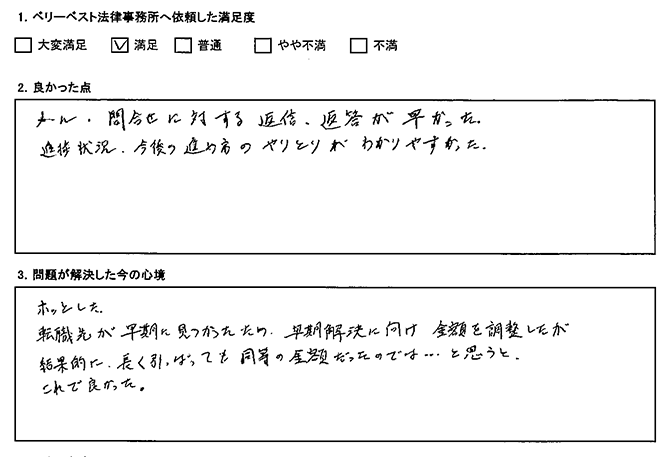 1. ベリーベスト法律事務所へ依頼した満足度
□ 大変満足 ☑ 満足 □ 普通 □ やや不満 □ 不満
2. 良かった点
メール・問合せに対する返信、返答が早かった。
進捗状況、今後の進め方のやりとりがわかりやすかった。
3. 問題が解決した今の心境
ホッとした。
転職先が早期に見つかったため、早期解決に向け金額を調整したが
結果的に、長く引っぱっても同等の金額だったのでは…と思うと、
これで良かった。